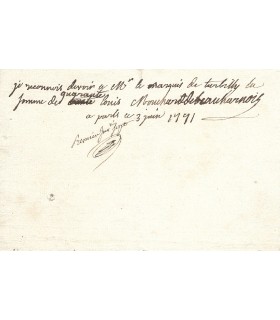 je reconnois devoir a Mr le marquis de turbilly la
somme de quarante louis Mouchard de beauharnois
a paris ce 3 juin 1791